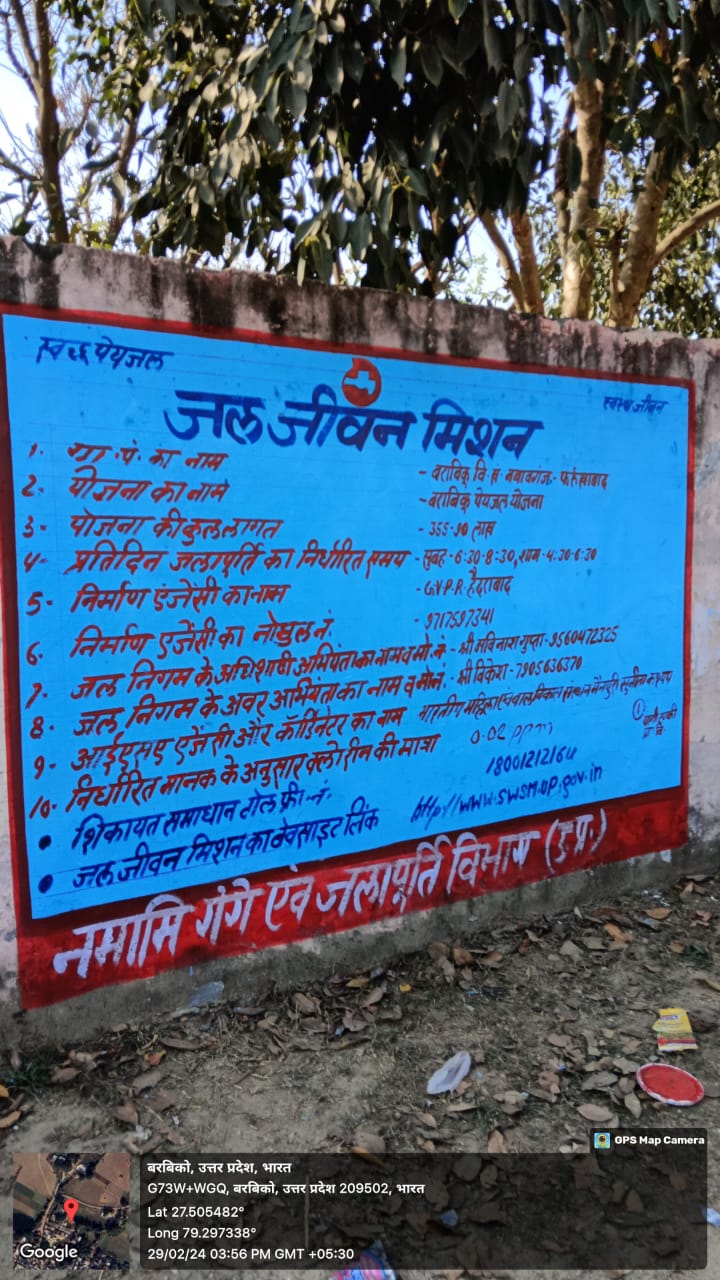 स्वच्छ पेयजल
स्वस्थ जीवन
जल जीवन मिशन
1. ग्रा. पं. का नाम - बराविक वि. ख. नवाबगंज- फर्रुखाबाद
2. योजना का नाम - बराबिक पेयजल योजना
3. योजना की कुल लागत - 355.90 लाख
4. प्रतिदिन जलापूर्ति का निर्धारित समय - सुबह - 6:30-8:30, शाम - 4:30-6:30
5. निर्माण एंजेंसी का नाम - G.V.P.R. हैदराबाद
6. निर्माण एजेंसी का मो0 नं. - 9717597341
7. जल निगम के अधिशाषी अभियंता का नाम व मो. नं. - श्री अविनाश गुप्ता - 9560472325
8. जल निगम के अवर अभियंता का नाम व मो.नं. - श्री विकेश - 7905636370
9. आईएसए एजेंसी और कॉर्डिनेटर का नाम भारतीय महिला एवं बाल विकास संस्थान मैनपुरी सुनीता कश्यप
10. निर्धारित मानक के अनुसार क्लोरीन की मात्रा 0.02 ppm
• शिकायत समाधान टोल फ्री नं. 18001212164
• जल जीवन मिशन का वेवसाइट लिंक http//www.swsm.up.gov.in
नमामि गंगे एवं जलापूर्ति विभाग (उ.प्र.)
GPS Map Camera
बरबिको, उत्तर प्रदेश, भारत
G73W+WGQ, बरबिको, उत्तर प्रदेश 209502, भारत
Lat 27.505482°
Long 79.297338°
29/02/24 03:56 PM GMT +05:30
Google